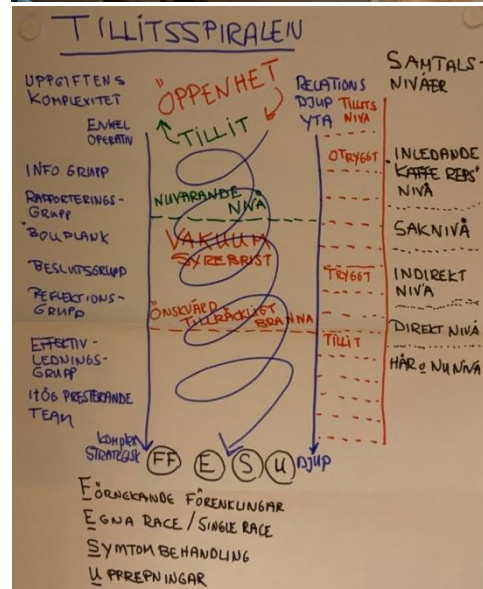 TILLITSSPIRALEN
UPPGIFTENS
KOMPLEXITET
ENKEL
OPERATIV
INFO GRUPP
RAPPORTERINGS-
GRUPP
"BOLLPLANK
BESLUTSGRUPP
REFLEKTIONS-
GRUPP
EFFEKTIV-
LEDNINGS-
GRUPP
HÖG PRESTERANDE
TEAM
KOMPLEX
STRATEGISK
ÖPPENHET
TILLIT
NUVARANDE
NIVÅ
VAKUUM
SYREBRIST
ÖNSKVÄRD
TILLRÄCKLIGT
BRA NIVÅ
RELATIONS
DJUP
YTA
DJUP
TILLITS
NIVÅ
OTRYGGT
TRYGGT
TILLIT
SAMTALS-
NIVÅER
INLEDANDE
"KAFFE REPS"
NIVÅ
SAKNIVÅ
INDIREKT
NIVÅ
DIREKT NIVÅ
HÄR O NU NIVÅ
FF E S U
FÖRNEKANDE FÖRENKLINGAR
EGNA RACE / SINGLE RACE
SYMTOM BEHANDLING
UPPREPNINGAR